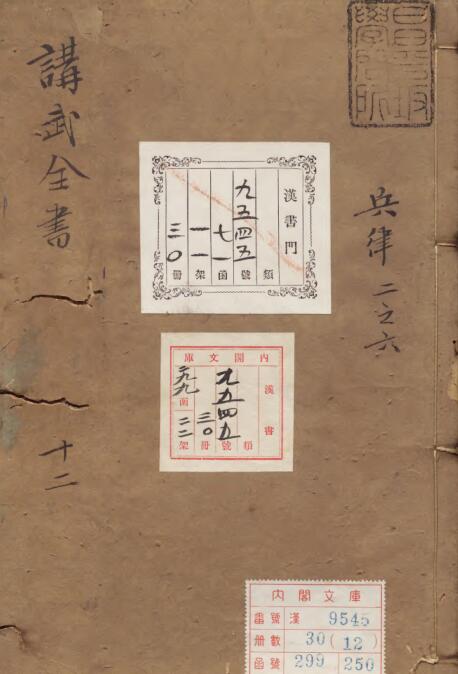 昌平坂
學問所
兵律 二之六
講武全書
十二
漢書門
類
九五四五 號
七一 函
一一 架
三〇 冊
內閣文庫
漢書
類
九五四五 號
三〇 冊
函
架
內閣文庫
番號 漢 9545
冊數 30 (12)
函號 299 250